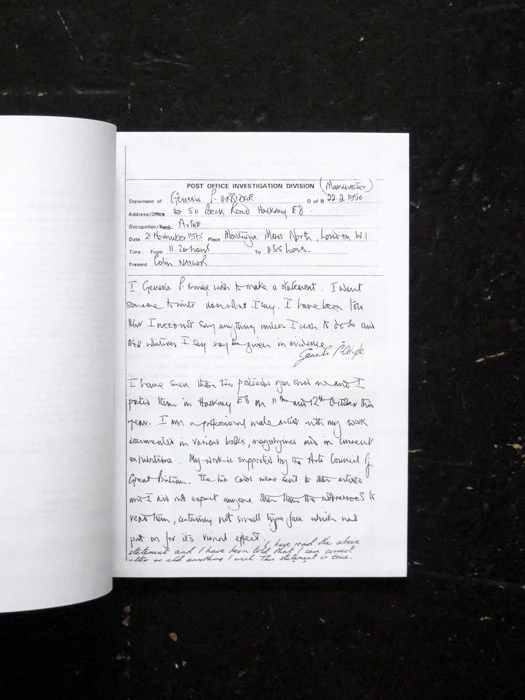 POST OFFICE INVESTIGATION DIVISION (Manchester)
Statement of Genesis P. ORRIDGE D of B 22.2.1950
Address/Office 50 Beck Road Hackney E8.
Occupation/Rank Artist
Date 21 November 1975 Place Mortimer House North, London W1
Time: From 11.20 hours to hours.
Present Colin
I Genesis P. Orridge wish to make a statement. I want
someone to write down what I say. I have been told
that I need not say anything unless I wish to do so and
that whatever I say may be given in evidence.
Genesis P. Orridge
I have seen these two postcards you shot me and I
posted them in Hackney E8 on 11th and 12th October this
year. I am a professional male artist with my work
documented in various books, magazines and in current
exhibitions. My work is supported by the Arts Council of
Great Britain. The two cards were sent to other artists
and I did not expect anyone other than the addressees to
read them, certainly not small type face which was
put on for it's visual effect. I have read the above
statement and I have been told that I can correct
alter or add anything I wish. This statement is true.